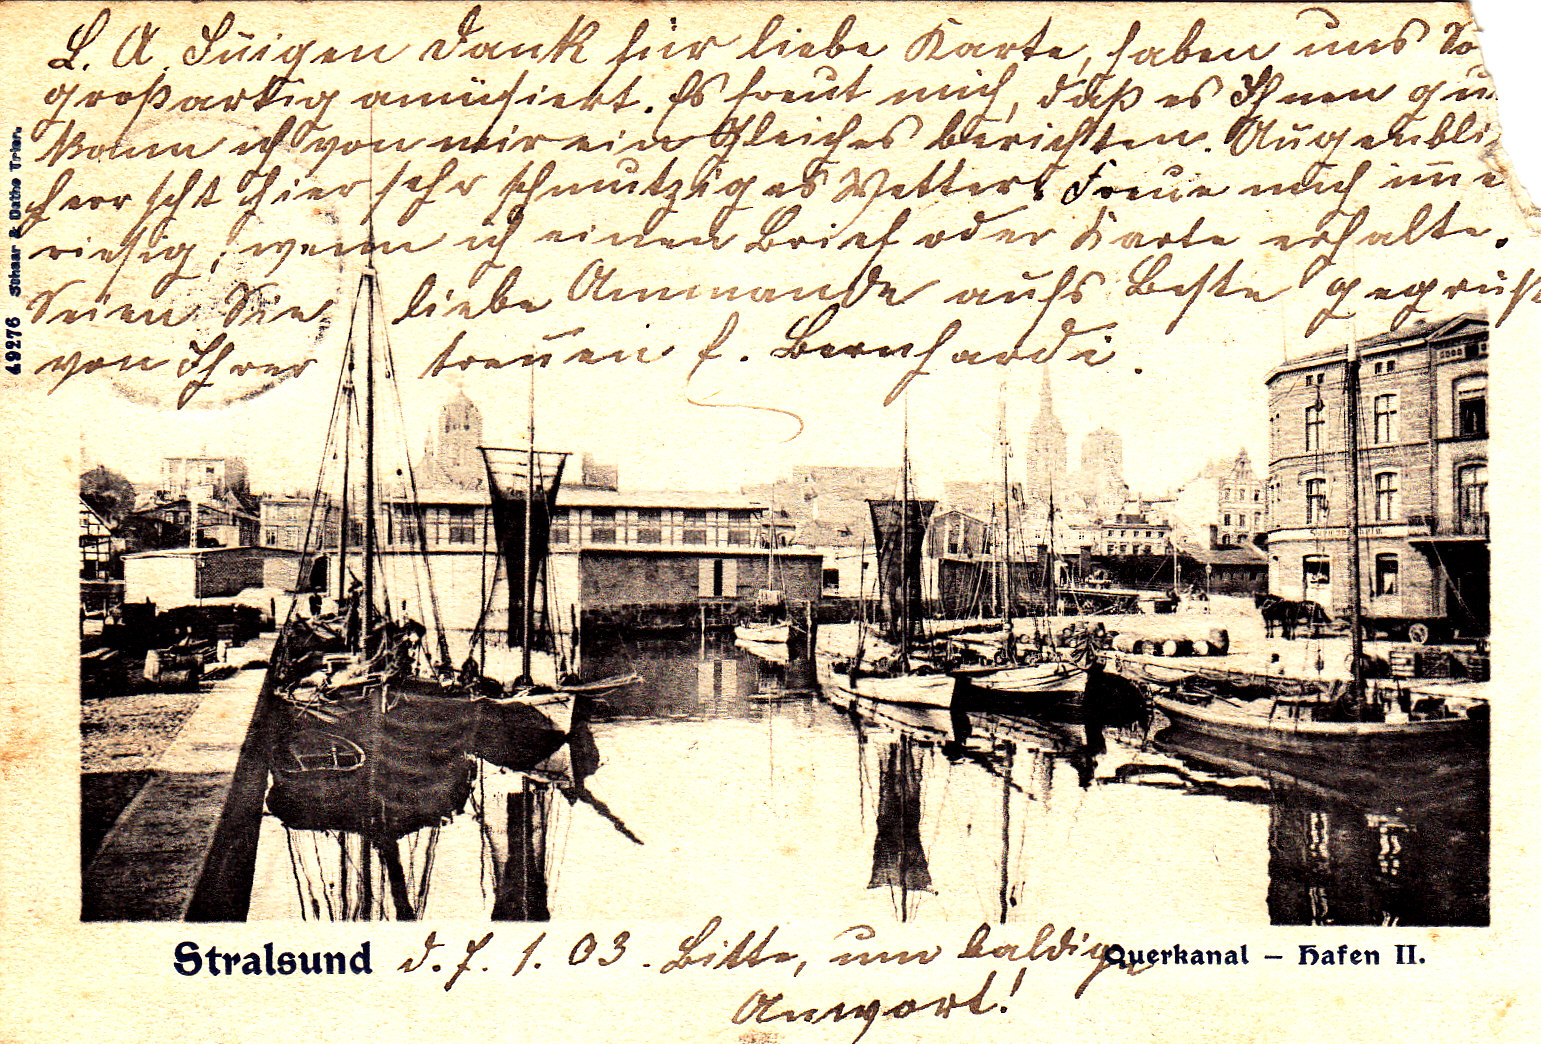 L. A. Innigen Dank für liebe Karte, haben uns so
großartig amüsiert. Es freut mich, daß es Ihnen gu
kann ich von mir ein Gleiches berichten. Augenbli
herrscht hier sehr schmutziges Wetter. Freue mich im̅e
riesig, wenn ich einen Brief oder Karte erhalte.
Seien Sie liebe Ammande aufs Beste gegrüßt
von Ihrer treuen E. Bernhardi.
49276 Schaar & Dathe Trier.
Stralsund d. 7. 1. 03. Bitte, um baldige Querkanal – Hafen II.
Anwort!